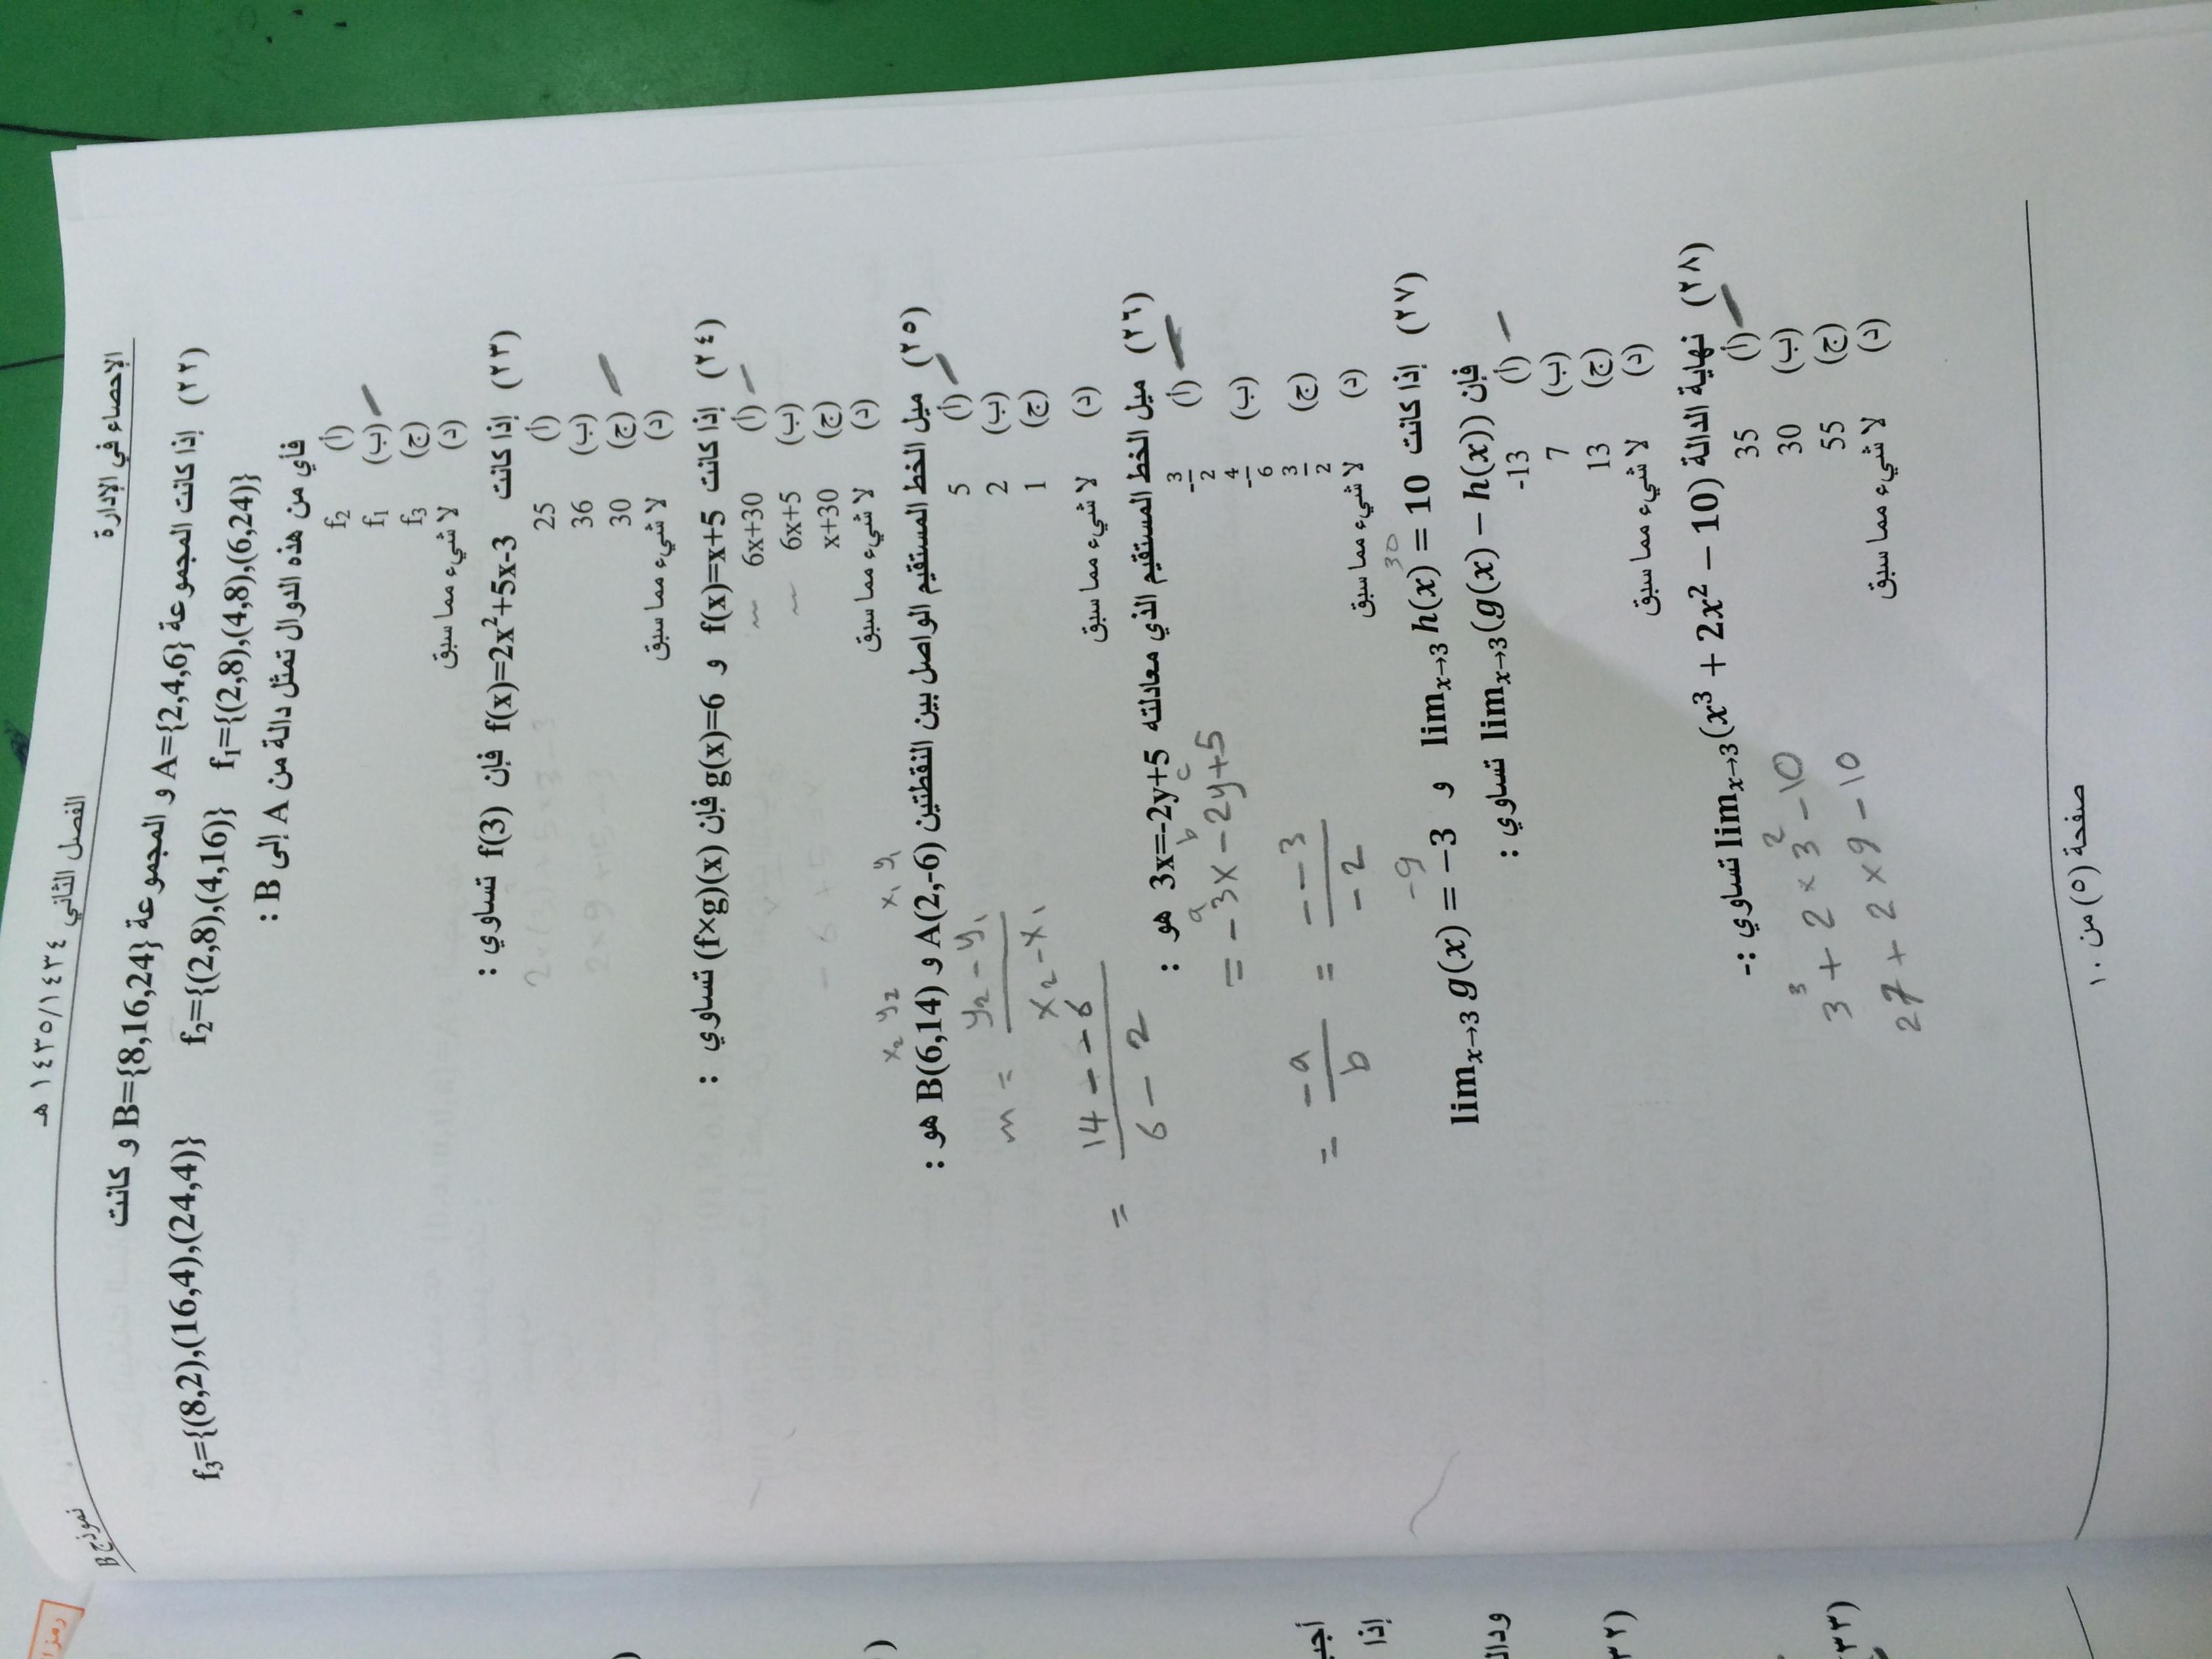 الإحصاء في الإدارة
الفصل الثاني ١٤٣٥/١٤٣٤ هـ
نموذج B
(٢٢) إذا كانت المجموعة A={2,4,6} و المجموعة B={8,16,24} و كانت
f₁={(2,8),(4,8),(6,24)} f₂={(2,8),(4,16)} f₃={(8,2),(16,4),(24,4)}
فأي من هذه الدوال تمثل دالة من A إلى B :
(أ) f₂
(ب) f₁
(ج) f₃
(د) لا شيء مما سبق
(٢٣) إذا كانت f(x)=2x²+5x-3 فإن f(3) تساوي :
(أ) 25
(ب) 36
(ج) 30
(د) لا شيء مما سبق
(٢٤) إذا كانت f(x)=x+5 و g(x)=6 فإن (f×g)(x) تساوي :
(أ) 6x+30
(ب) 6x+5
(ج) x+30
(د) لا شيء مما سبق
x₁ y₁ x₂ y₂
(٢٥) ميل الخط المستقيم الواصل بين النقطتين A(2,-6) و B(6,14) هو :
(أ) 5
(ب) 2
(ج) 1
(د) لا شيء مما سبق
m = y₂ - y₁ / x₂ - x₁
= 14 - - 6 / 6 - 2
(٢٦) ميل الخط المستقيم الذي معادلته 3x=-2y+5 هو :
(أ) -3/2
(ب) -4/6
(ج) 3/2
(د) لا شيء مما سبق
a b c
= -3x - 2y+5
= -a / b = - -3 / -2
(٢٧) إذا كانت lim x→3 h(x) = 10 و lim x→3 g(x) = −3
30
-9
فإن lim x→3 (g(x) − h(x)) تساوي :
(أ) -13
(ب) 7
(ج) 13
(د) لا شيء مما سبق
(٢٨) نهاية الدالة lim x→3 (x³ + 2x² − 10) تساوي :-
(أ) 35
(ب) 30
(ج) 55
(د) لا شيء مما سبق
3³ + 2 × 3² - 10
27 + 2 × 9 - 10
صفحة (٥) من ١٠
رمز ا
أجب
إذا
ودالة
(٣٢
(٣٣